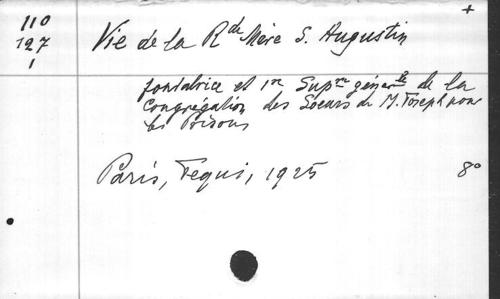 110
127
1
+
Vie de la Rde Mère S. Augustin
fondatrice et 1re Supre génerle de la
Congrégation des Soeurs de M. Joseph pour
les Prisons
Paris, Tequi, 1925 8°